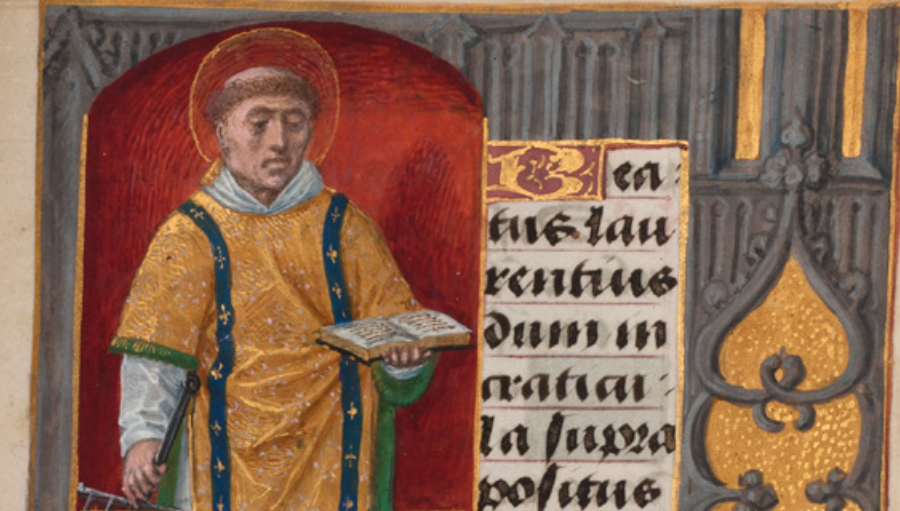 Bea-
tus lau
rentius
dum in
craticu-
la supra
positus